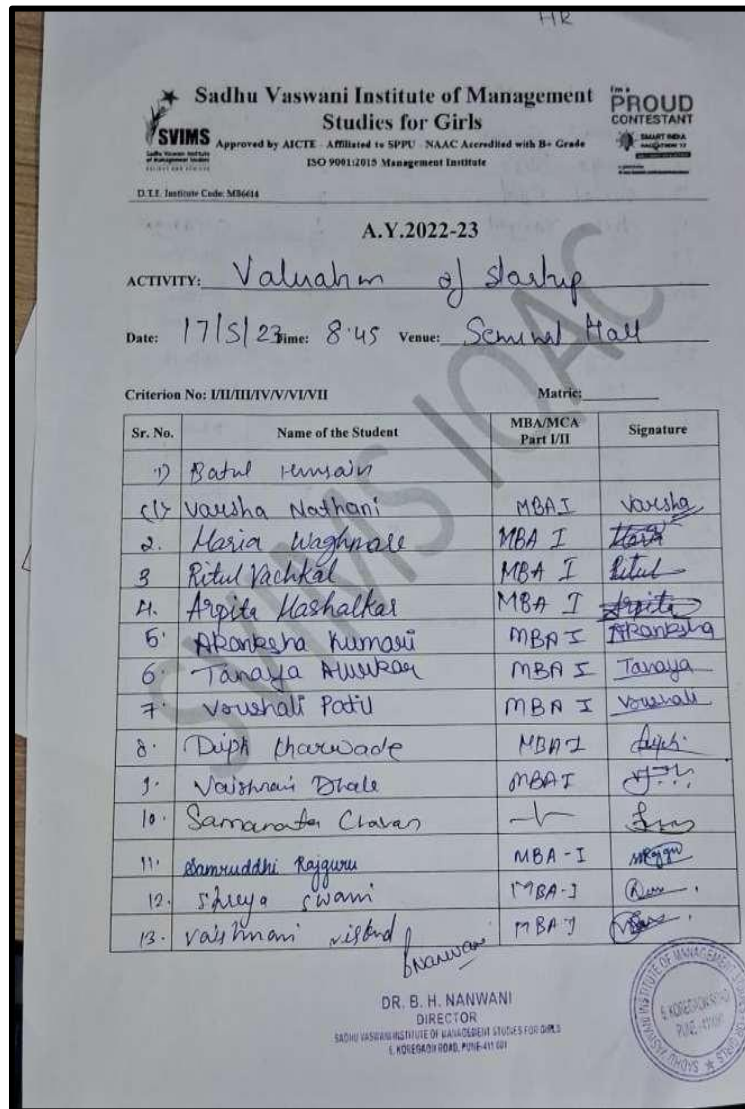 HR
Sadhu Vaswani Institute of Management
Studies for Girls
SVIMS
Approved by AICTE - Affiliated to SPPU - NAAC Accredited with B+ Grade
ISO 9001:2015 Management Institute
I'm a
PROUD
CONTESTANT
SMART INDIA
D.T.E. Institute Code: MB6614
A.Y.2022-23
ACTIVITY: Valuation of Startup
Date: 17/5/23 Time: 8.45 Venue: Seminar Hall
Criterion No: I/II/III/IV/V/VI/VII Matric:
Sr. No. Name of the Student MBA/MCA Part I/II Signature
1) Batul Hussain
(1) Varsha Nathani MBA I Varsha
2. Maria Waghmare MBA I
3 Ritul Vachkal MBA I Ritul
4. Arpita Mashalkar MBA I Arpita
5. Akanksha Kumari MBA I Akanksha
6. Tanaya MBA I Tanaya
7. Voushali Patil MBA I Voushali
8. Dipti Kharwade MBA I
9. Vaishnavi Dhale MBA I
10. Chavan
11. Samruddhi Rajguru MBA-I
12. Shreya Swami MBA-I
13. Vaishnavi MBA-I
BNanwani
DR. B. H. NANWANI
DIRECTOR
SADHU VASWANI INSTITUTE OF MANAGEMENT STUDIES FOR GIRLS
6, KOREGAON ROAD, PUNE-411 001
SVIMS IQAC